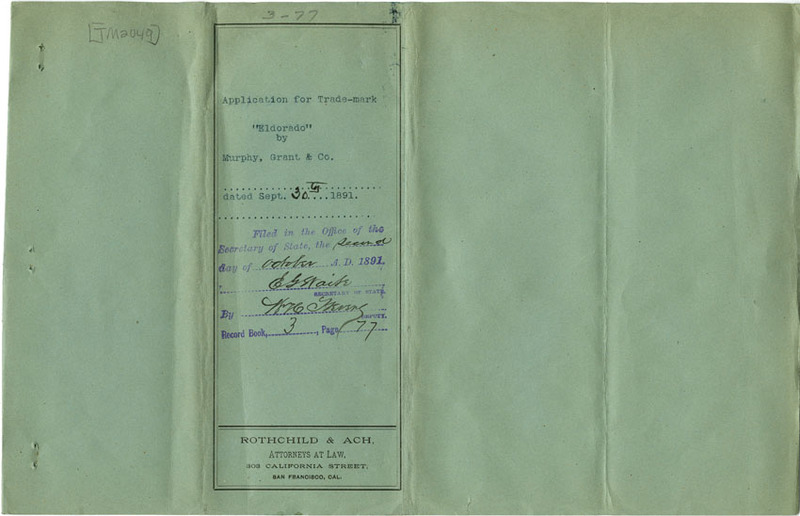 3-77
[TM2049]
Application for Trade-mark
"Eldorado"
by
Murphy, Grant & Co.
dated Sept. 30th 1891.
Filed in the Office of the
Secretary of State, the second
day of October A. D. 1891.
E G Waite
SECRETARY OF STATE.
By W H
DEPUTY.
Record Book, 3, Page 77
ROTHCHILD & ACH,
ATTORNEYS AT LAW,
303 CALIFORNIA STREET,
SAN FRANCISCO, CAL.